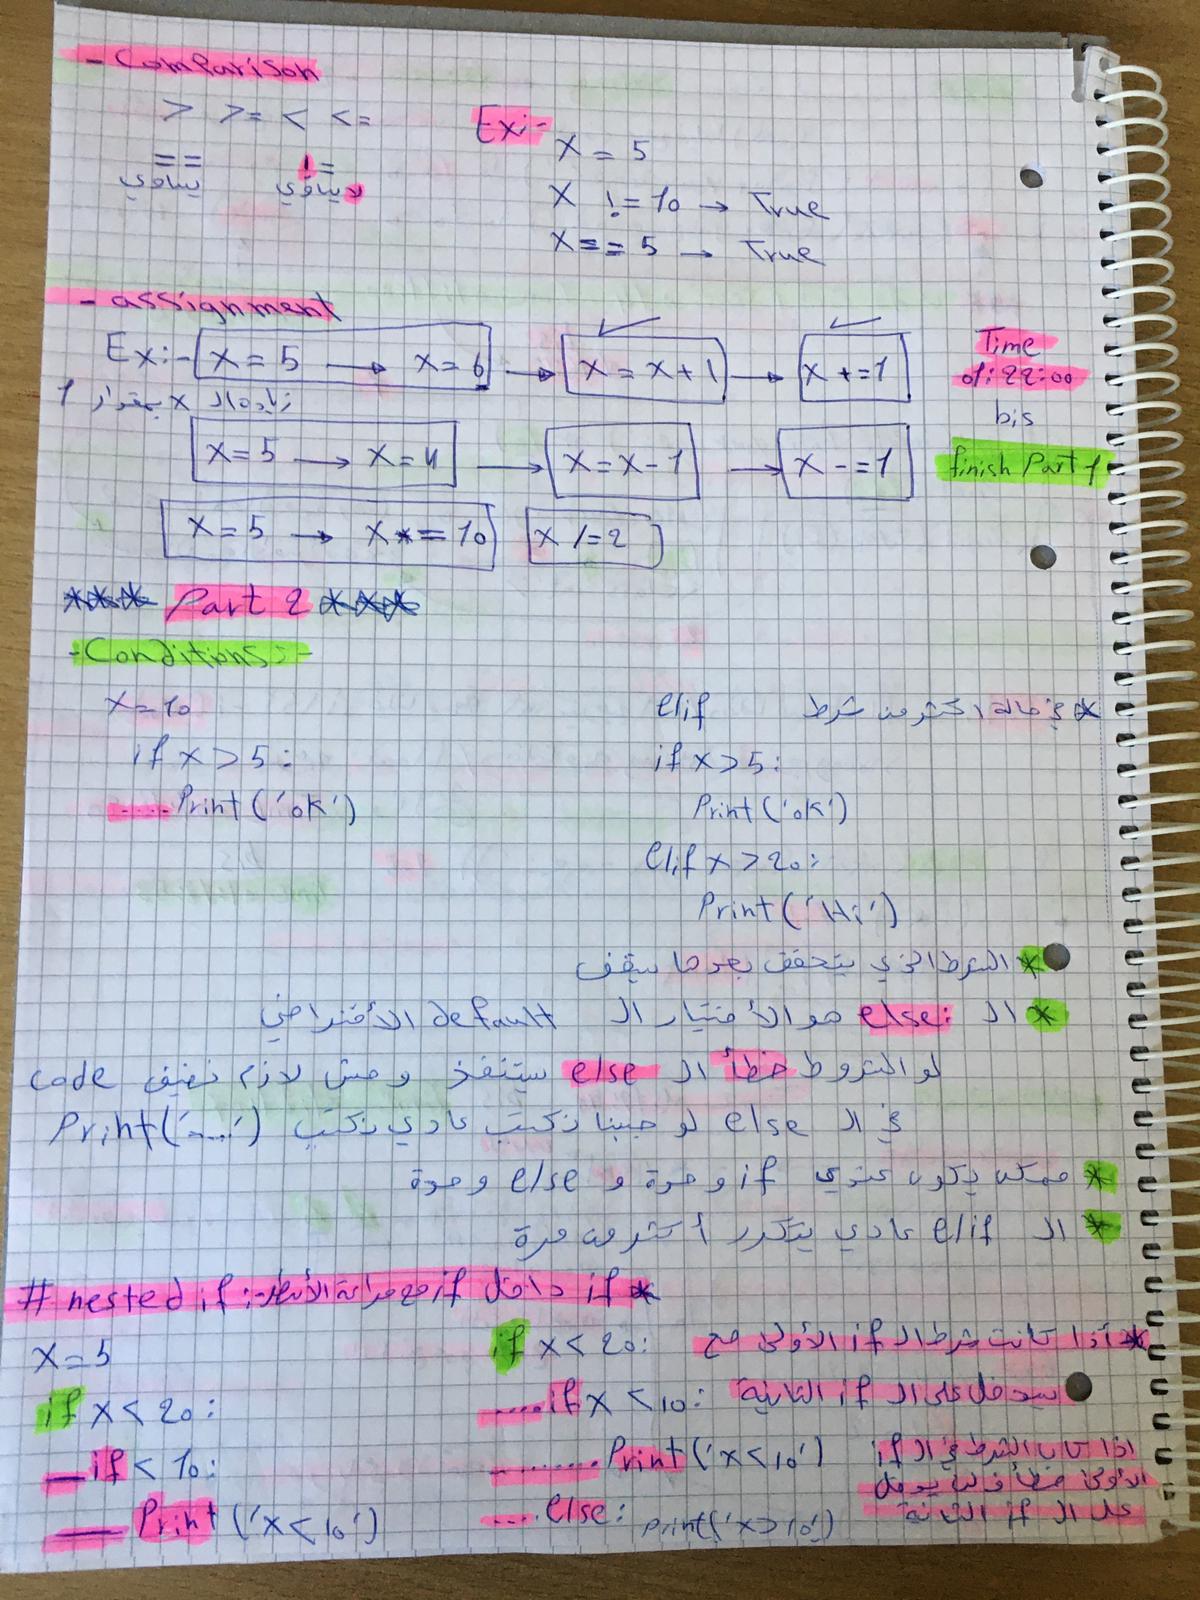 - Comparison
> >= < <=
== !=
يساوي لا يساوي
Ex:-
X = 5
X != 10 → True
X == 5 → True
- assignment
Ex:- X = 5 → X = 6 → X = X + 1 → X += 1
زيادة ال X بمقدار 1
X = 5 → X = 4 → X = X - 1 → X -= 1
X = 5 → X *= 10 X /= 2
Time
01:22:00
bis
finish Part 1
*** Part 2 ***
- Conditions:-
X = 10
if X > 5:
.....Print ('ok')
* في حالة اكثر من شرط elif
if X > 5:
Print ('ok')
elif X > 20:
Print ('Hi')
* الشرط الذي يتحقق بعدها سيقف
* ال else: هو الأختيار ال default الأفتراضي
لو الشروط خطأ ال else ستنفذ ومش لازم نضيف code
في ال else لو حبينا نكتب عادي نكتب Print('.....')
* ممكن يكون عندي if وحدة و else وحدة
* ال elif عادي يتكرر أكثر من مرة
# nested if:- * if داخل if مع مراعاة الأسطر
X = 5
if X < 20:
— if < 10:
— Print ('X < 10')
if X < 20:
.....if X < 10:
..........Print ('X < 10')
.....else: Print('X > 10')
* أذا كانت شرط ال if الأولى صح
سيدخل على ال if الثانية
اذا كان الشرط في ال if
الأولى خطأ فلن يدخل
على ال if الثانية